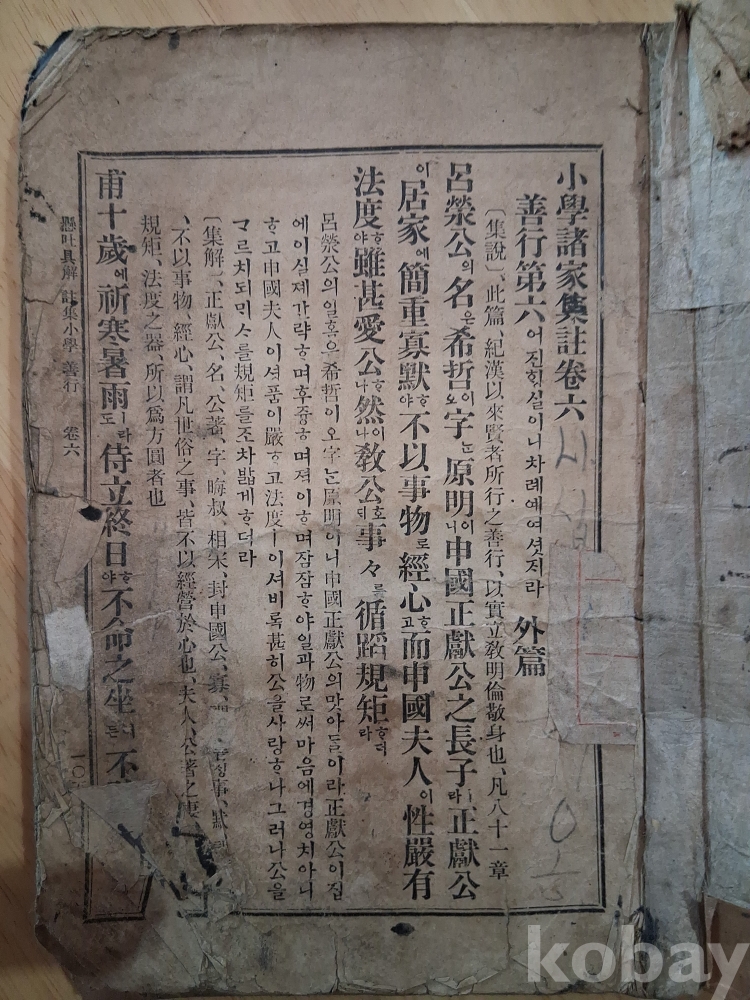 小學諸家集註卷六
善行第六 어진ᄒᆡᆼ실이니차례에여섯ᄌᆡ라 外篇
〔集說〕、此篇、紀漢以來賢者所行之善行、以實立敎明倫敬身也、凡八十一章
呂滎公의名은希哲이오字는原明이니申國正獻公之長子ㅣ라正獻公
이居家에簡重寡默ᄒᆞ야不以事物로經心ᄒᆞ고而申國夫人이性嚴有
法度ᄒᆞ야雖甚愛公ᄒᆞ나然이나敎公호ᄃᆡ事々를循蹈規矩ᄒᆞ더라
呂滎公의일홈은希哲이오字는原明이니申國正獻公의맛아들이라正獻公이집
에이실제간략ᄒᆞ며후즁ᄒᆞ며젹이ᄒᆞ며잠잠ᄒᆞ야일과物로써마음에경영치아니
ᄒᆞ고申國夫人이셔품이嚴ᄒᆞ고法度ㅣ이셔비록甚히公을사랑ᄒᆞ나그러나公을
ᄀᆞᄅᆞ치되ᄆᆡᄉᆞ를規矩를조차밟게ᄒᆞ더라
〔集解〕、正獻公、名、公著、字、晦叔、相宋、封申國公、
、不以事物、經心、謂凡世俗之事、皆不以經營於心也、夫人、公著之妻
規矩、法度之器、所以爲方圓者也
甫十歲에祈寒暑雨ㅣ라도侍立終日ᄒᆞ야不命之坐ㅣ어든不
懸吐具解 註集小學 善行 卷六
kobay